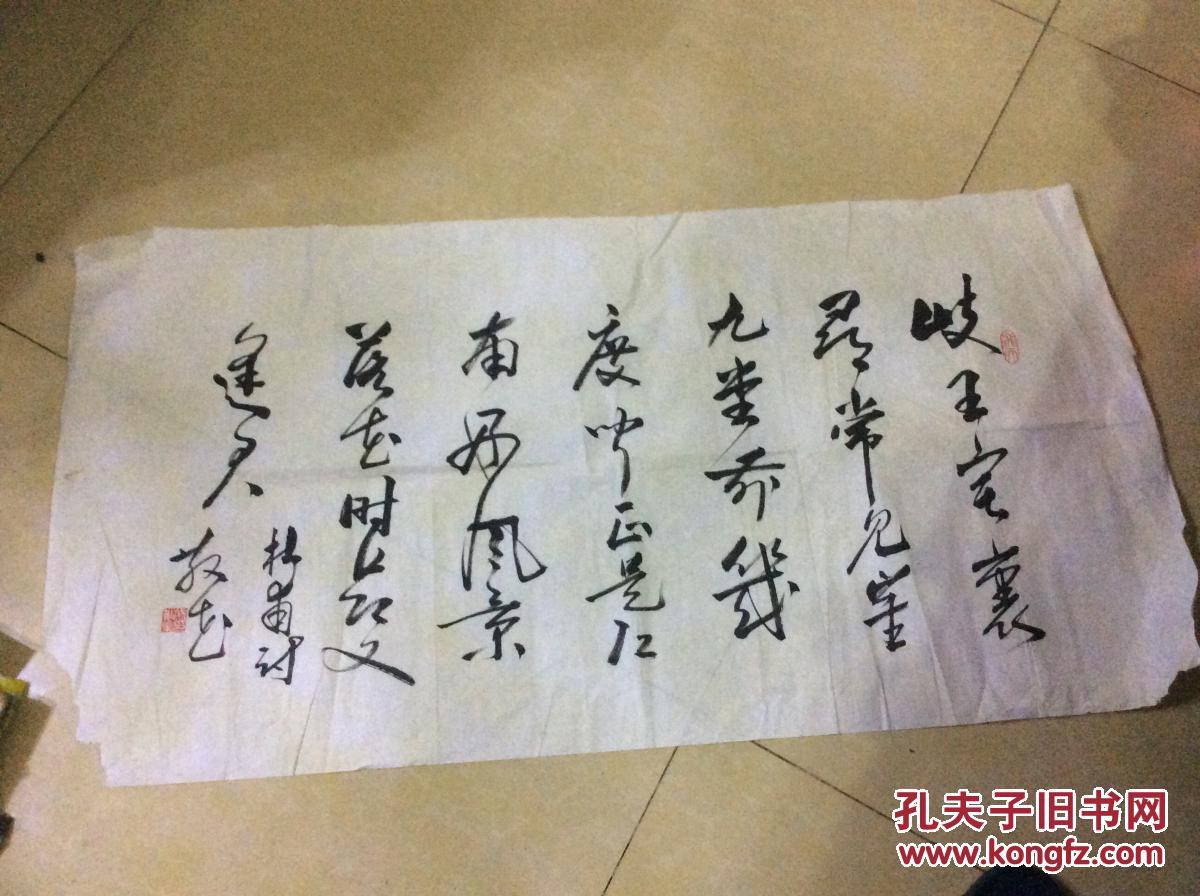 岐王宅裏
尋常見崔
九堂前幾
度聞正是江
南好風景
落花时節又
逢君
杜甫詩
孔夫子旧书网
www.kongfz.com